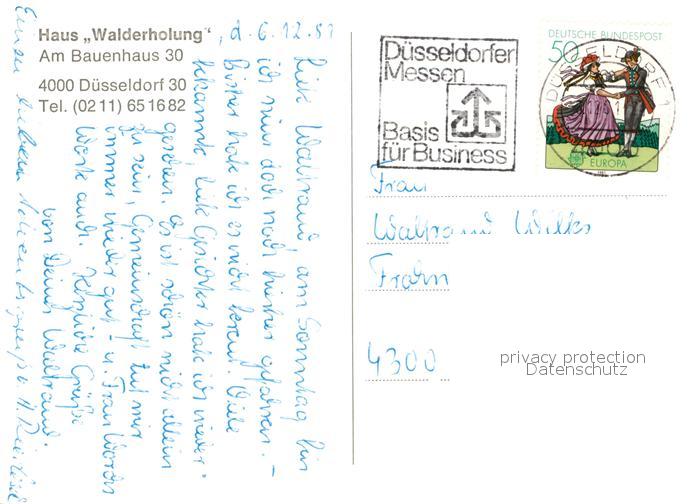 Haus „Walderholung"
Am Bauenhaus 30
4000 Düsseldorf 30
Tel. (02 11) 65 16 82
, d. 6.12.81
Liebe Waltraud, am Sonntag bin
ich nun doch noch hierher gefahren. –
Bisher habe ich es nicht bereut. Viele
bekannte, liebe Gesichter habe ich wieder-
gesehen. Es ist schön nicht allein
zu sein, Gemeinschaft tut mir
immer wieder gut - u. Frau
auch. Herzliche Grüße
von Deiner Waltraud
Einen lieben
Düsseldorfer
Messen
Basis
für Business
DEUTSCHE BUNDESPOST
50
DÜSSELDORF 1
EUROPA
Frau
Waltraud Wilks
Frahn
4300
privacy protection
Datenschutz